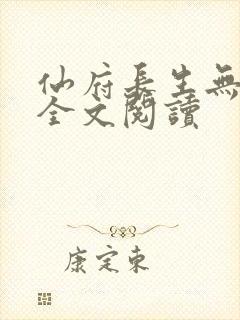 仙府長生無
全文閱讀
康定東